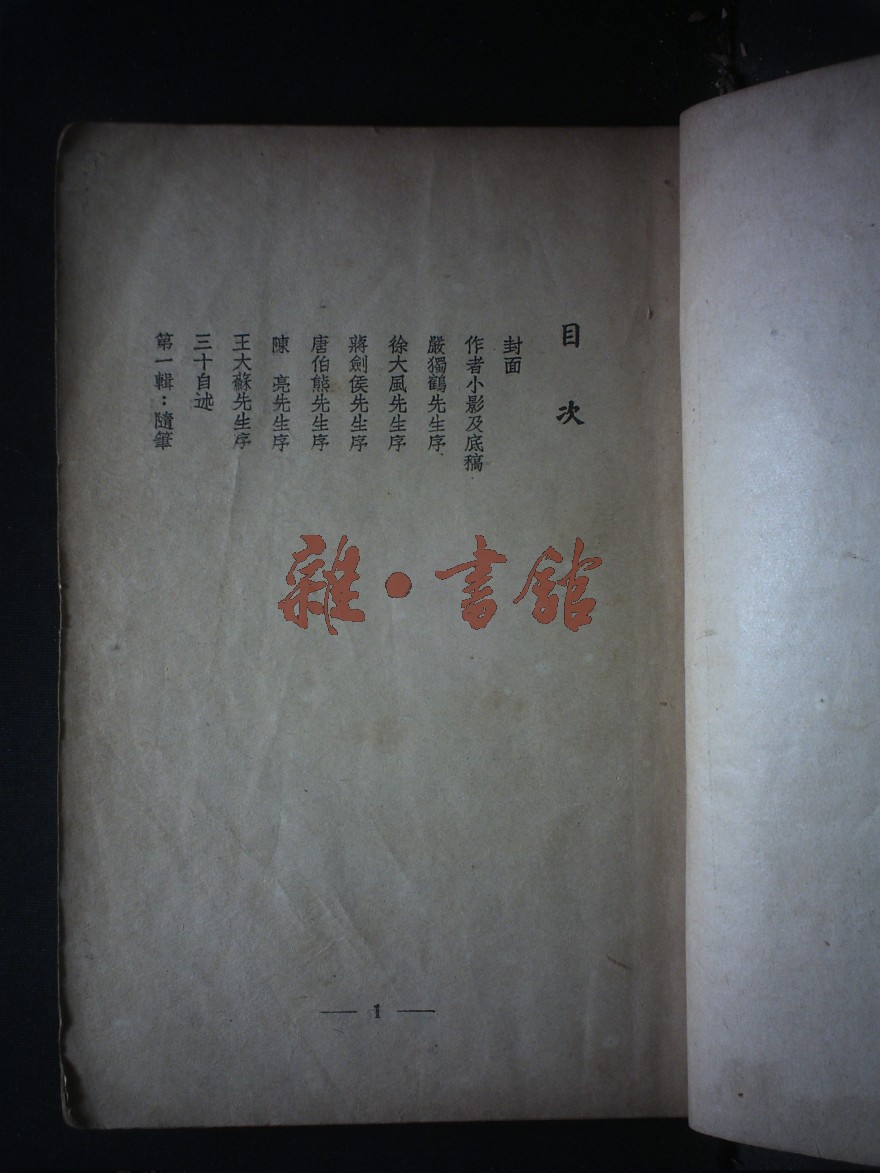 目次
封面
作者小影及底稿
嚴獨鶴先生序
徐大風先生序
蔣劍侯先生序
唐伯熊先生序
陳　亮先生序
王大蘇先生序
三十自述
第一輯：隨筆
雜·書館
— 1 —